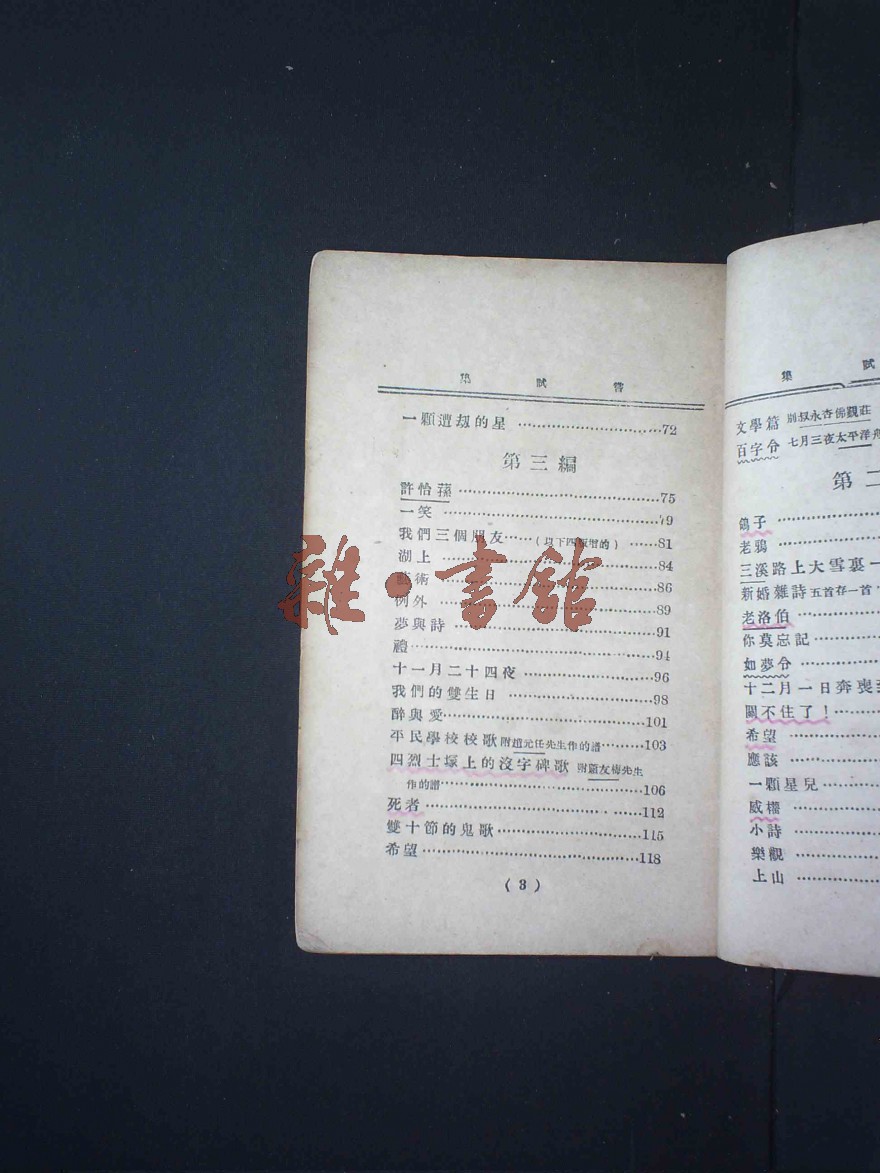 集 試 嘗
一顆遭刼的星 ……72
第三編
許怡蓀 ……75
一笑 ……79
我們三個朋友 ……(以下四版增的) ……81
湖上 ……84
藝術 ……86
例外 ……89
夢與詩 ……91
禮 ……94
十一月二十四夜 ……96
我們的雙生日 ……98
醉與愛 ……101
平民學校校歌 附趙元任先生作的譜 ……103
四烈士塚上的沒字碑歌 附蕭友梅先生
作的譜 ……106
死者 ……112
雙十節的鬼歌 ……115
希望 ……118
(3)
集 試
文學篇 別叔永杏佛覲莊
百字令 七月三夜太平洋舟
第二
鴿子 ……
老鴉 ……
三溪路上大雪裏一
新婚雜詩 五首存一首
老洛伯 ……
你莫忘記 ……
如夢令 ……
十二月一日奔喪到
關不住了! ……
希望 ……
應該 ……
一顆星兒 ……
威權 ……
小詩 ……
樂觀 ……
上山 ……
雜·書館